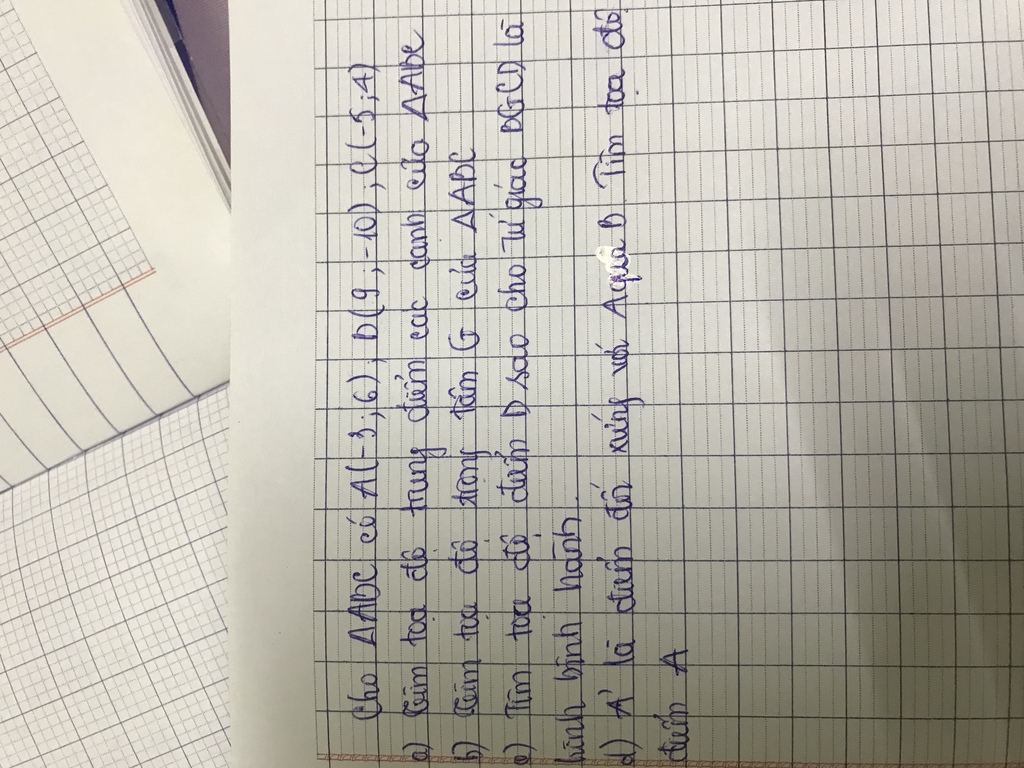 Cho ΔABC có A(-3;6), B(9;-10), C(-5;4)
a) Tìm tọa độ trung điểm các cạnh của ΔABC
b) Tìm tọa độ trọng tâm G của ΔABC
c) Tìm tọa độ điểm D sao cho Tứ giác BGCD là
hình bình hành.
d) A' là điểm đối xứng với A qua B Tìm tọa độ
điểm A